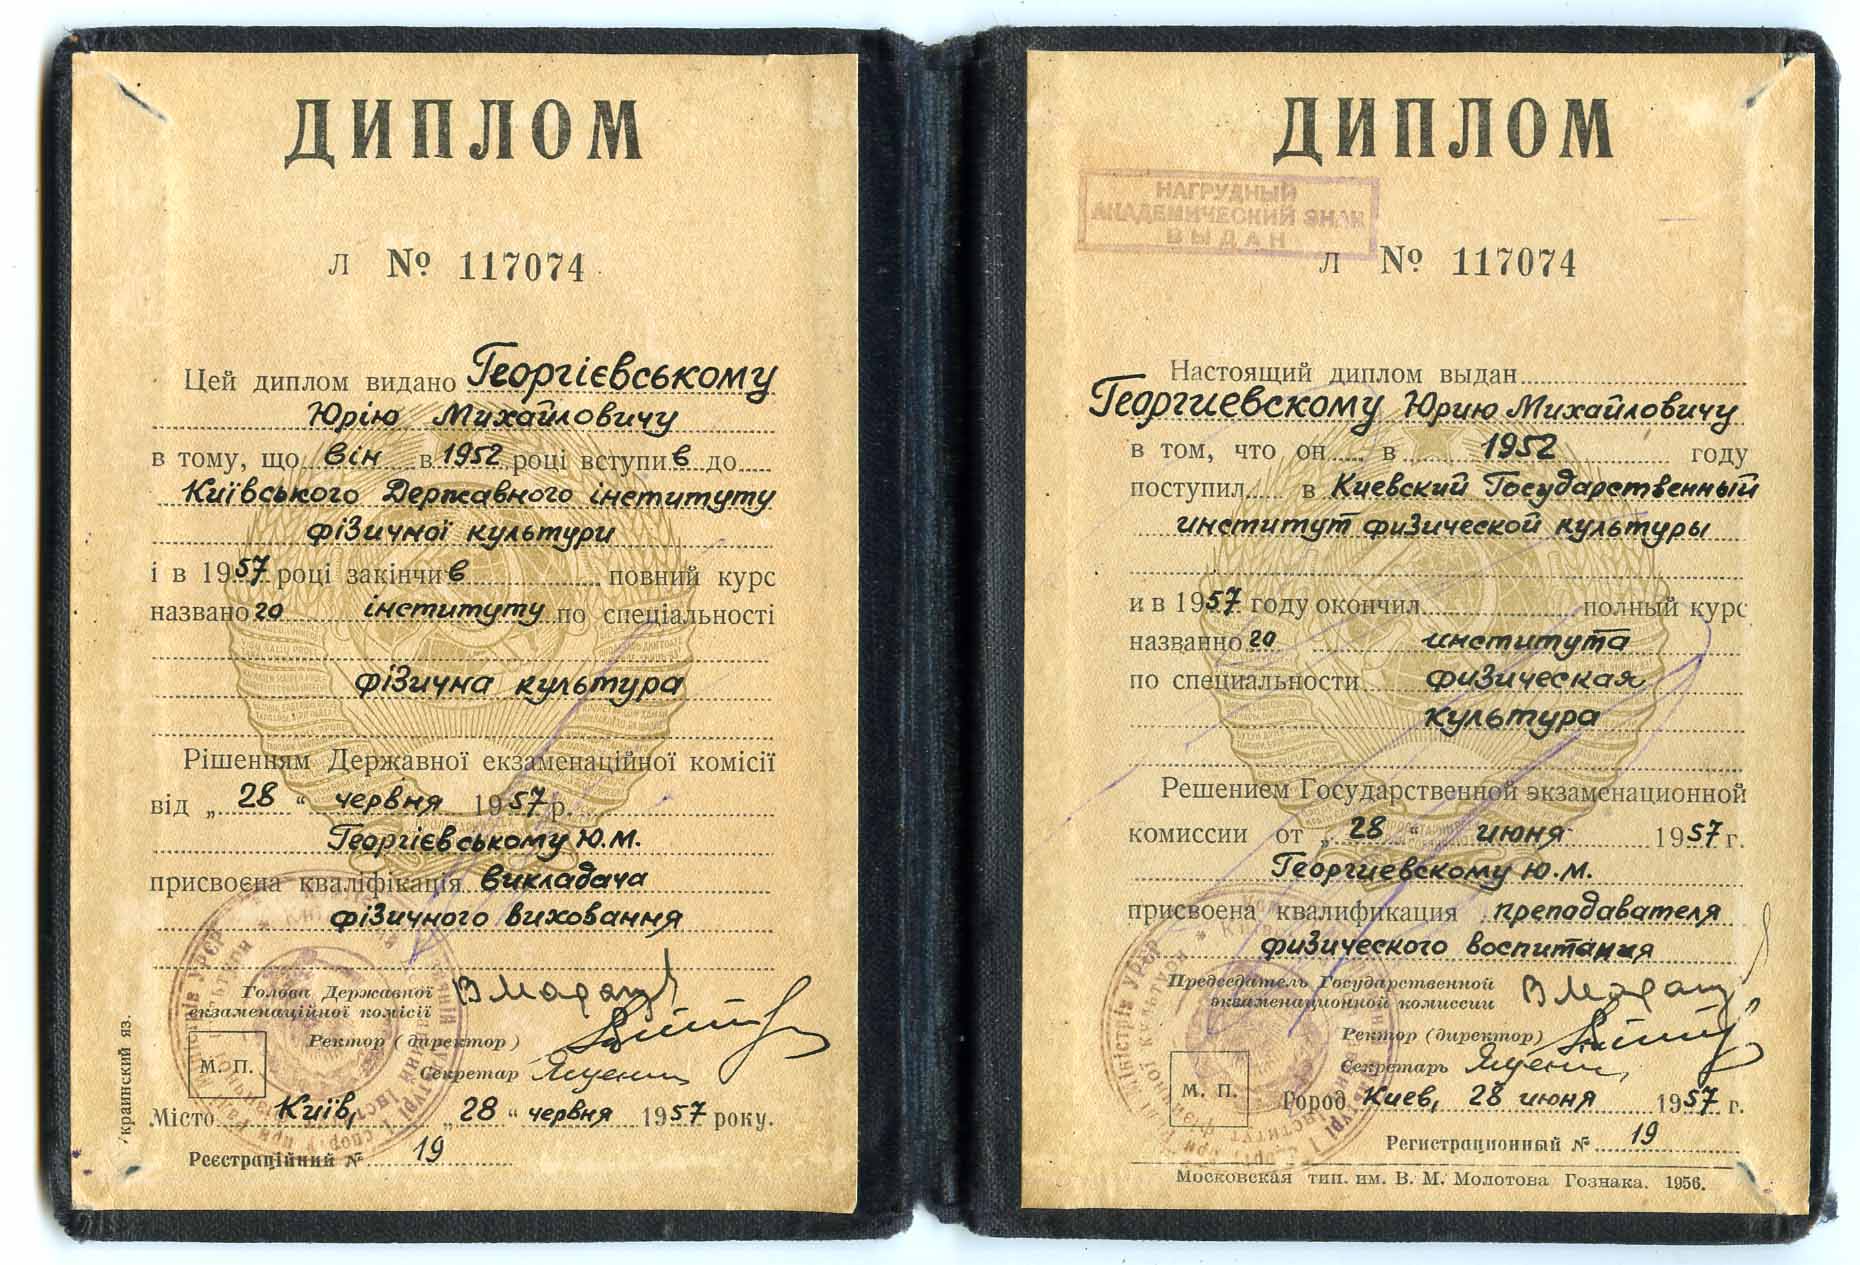 ДИПЛОМ
Л № 117074
Цей диплом видано Георгієвському
Юрію Михайловичу
в тому, що він в 1952 році вступив до
Київського Державного інституту
фізичної культури
і в 1957 році закінчив повний курс
названого інституту по спеціальності
фізична культура
Рішенням Державної екзаменаційної комісії
від „28“ червня 1957 р.
Георгієвському Ю.М.
присвоєна кваліфікація викладача
фізичного виховання
Голова Державної
екзаменаційної комісії
Ректор (директор)
М. П.
Секретар
Місто Київ, „28“ червня 1957 року.
Реєстраційний № 19
Украинский яз.
ДИПЛОМ
НАГРУДНЫЙ
АКАДЕМИЧЕСКИЙ ЗНАК
ВЫДАН
Л № 117074
Настоящий диплом выдан
Георгиевскому Юрию Михайловичу
в том, что он в 1952 году
поступил в Киевский Государственный
институт физической культуры
и в 1957 году окончил полный курс
названного института
по специальности физическая
культура
Решением Государственной экзаменационной
комиссии от „28“ июня 1957 г.
Георгиевскому Ю.М.
присвоена квалификация преподавателя
физического воспитания
Председатель Государственной
экзаменационной комиссии
Ректор (директор)
Секретарь
М. П.
Город Киев, 28 июня 1957 г.
Регистрационный № 19
Московская тип. им. В. М. Молотова Гознака. 1956.